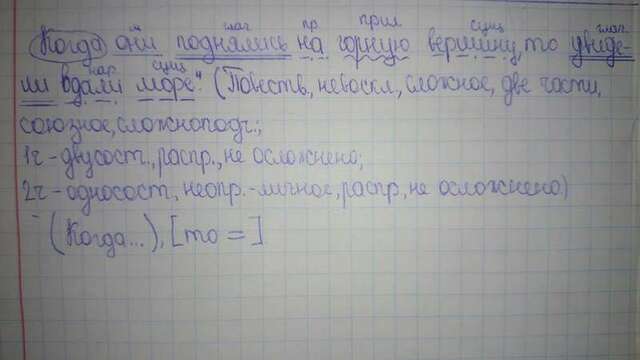 глаг пр. прил сущ глаг.
Когда они поднялись на горную вершину, то увиде-
нар. сущ
ли вдали море⁴. (Повеств, невоскл, сложное, две части,
союзное, сложноподч.;
1ч - двусост., распр., не осложнено;
2ч - односост, неопр.-личное, распр, не осложнено)
(Когда...), [то =]